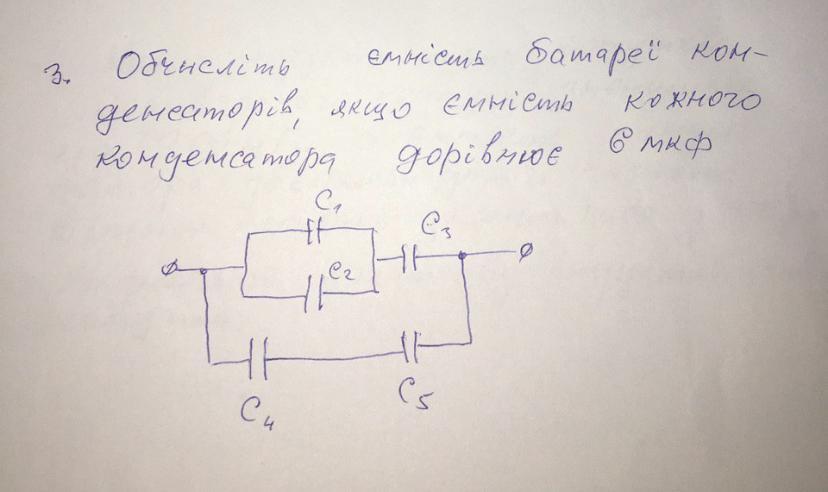 3. Обчисліть ємність батареї кон-
денсаторів, якщо ємність кожного
конденсатора дорівнює 6 мкф
C1
C3
C2
C5
C4